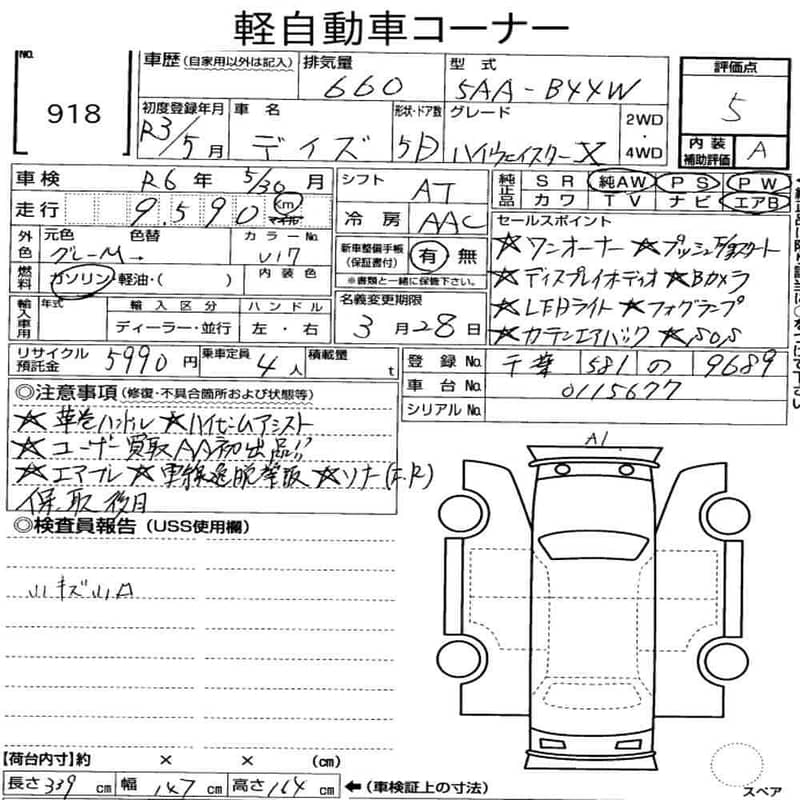 軽自動車コーナー
NO. 918
車歴 (自家用以外は記入) 排気量 660 型式 5AA-B44W 評価点 5
初度登録年月 R3/5月 車名 デイズ 形状・ドア数 5D グレード ハイウェイスターX 2WD・4WD 内装補助評価 A
車検 R6年 5/30月 シフト AT 純正品 SR 純AW PS PW
走行 9,590 Km マイル 冷房 AAC カワ TV ナビ エアB
外色 元色 グレーM→ 色替 カラーNo. 新車整備手帳(保証書付) 有 無
※書類と一緒に保管下さい。
燃料 ガソリン・軽油・( ) 内装色
輸入車用 年式 輸入区分 ディーラー・並行 ハンドル 左・右 名義変更期限 3月28日
セールスポイント
☆ワンオーナー ☆プッシュスタート
☆ディスプレイオーディオ ☆Bカメラ
☆LEDライト ☆フォグランプ
☆カーテンエアバック ☆SOS
リサイクル預託金 5990円 乗車定員 4人 積載量 t 登録No. 千葉 581 の 9689
車台No. 0115677
シリアルNo.
◎注意事項 (修復・不具合箇所および状態等)
☆革巻ハンドル ☆ハイビームアシスト
☆ユーザー買取AA初出品!!
☆エマブレ ☆車線逸脱警報 ☆ソナー(F,R)
保、取 後日
◎検査員報告 (USS使用欄)
小キズ小A
A1
【荷台内寸】約 × × (cm)
長さ 339 cm 幅 147 cm 高さ 164 cm ←(車検証上の寸法)
スペア